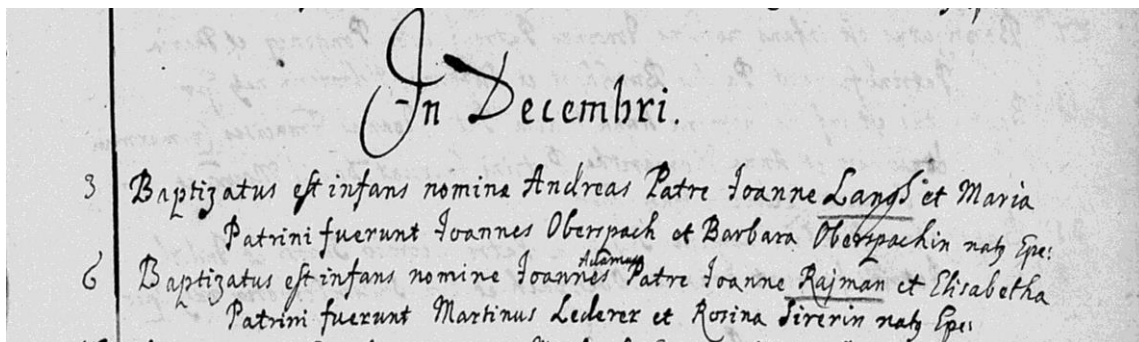 In Decembri.
3 Baptizatus est infans nomine Andreas Patre Joanne Langh et Maria
Patrini fuerunt Joannes Oberspach et Barbara Oberspachin natq Epe:
Adamus
6 Baptizatus est infans nomine Joannes Patre Joanne Rajman et Elisabetha
Patrini fuerunt Martinus Lederer et Rosina natq Epe: